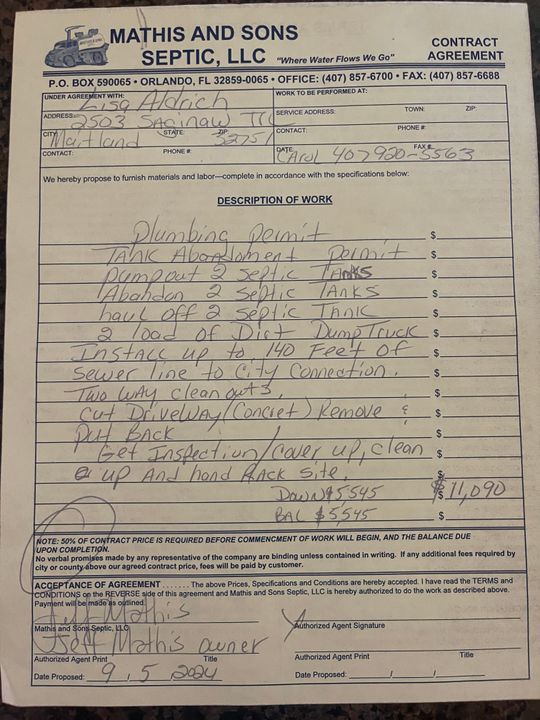 MATHIS AND SONS
SEPTIC, LLC "Where Water Flows We Go"
CONTRACT
AGREEMENT
P.O. BOX 590065 • ORLANDO, FL 32859-0065 • OFFICE: (407) 857-6700 • FAX: (407) 857-6688
UNDER AGREEMENT WITH: Lisa Aldrich
WORK TO BE PERFORMED AT:
ADDRESS: 2503 Saginaw TRL
SERVICE ADDRESS: TOWN: ZIP:
CITY: Maitland STATE: ZIP: 32751
CONTACT: PHONE #:
CONTACT: PHONE #:
DATE FAX #:
Carol 407 920-5563
We hereby propose to furnish materials and labor—complete in accordance with the specifications below:
DESCRIPTION OF WORK
Plumbing permit $
Tank Abandonment permit $
pumpout 2 septic TANKS $
Abandon 2 septic TANKS $
haul off 2 septic Tank $
2 load of Dirt DumpTruck $
Install up to 140 Feet of $
sewer line to City Connection. $
Two way clean outs, $
Cut DriveWAy (Concret) Remove & $
Put BACK $
Get Inspection/cover up, clean $
up And hand RAck site. $
Down $5,545 $ $11,090
BAL $5,545 $
NOTE: 50% OF CONTRACT PRICE IS REQUIRED BEFORE COMMENCMENT OF WORK WILL BEGIN, AND THE BALANCE DUE
UPON COMPLETION.
No verbal promises made by any representative of the company are binding unless contained in writing. If any additional fees required by
city or county above our agreed contract price, fees will be paid by customer.
ACCEPTANCE OF AGREEMENT ....... The above Prices, Specifications and Conditions are hereby accepted. I have read the TERMS and
CONDITIONS on the REVERSE side of this agreement and Mathis and Sons Septic, LLC is hereby authorized to do the work as described above.
Payment will be made as outlined.
Jeff Mathis
Mathis and Sons Septic, LLC
X
Authorized Agent Signature
Jeff Mathis owner
Authorized Agent Print Title
Authorized Agent Print Title
Date Proposed: 9 . 5 . 2024
Date Proposed: / /